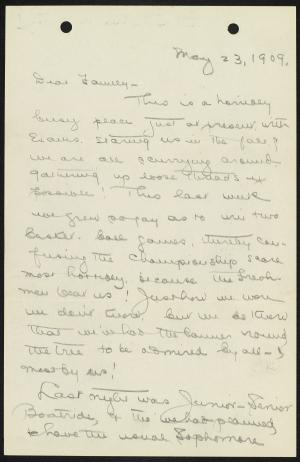 May 23, 1909.
Dear Family -
This is a horribly
busy place just at present, with
Exams. staring us in the face &
we are all scurrying around
gathering up loose threads &
! This last week
we grew so gay as to win two
Basket-ball games, thereby con-
fusing the Championship score
most horribly, because the Fresh-
men beat us! Just how we won
we don't know, but we do know
that we've had the banner round
the tree to be admired by all - &
mostly us!
Last night was Junior-Senior
Boatride, & tho' we had planned
to have the usual Sophomore